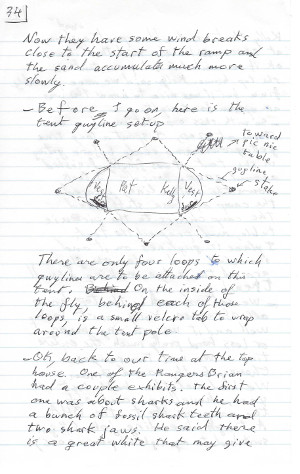 34
Now they have some wind breaks
close to the start of the ramp and
the sand accumulates much more
slowly.
- Before I go on, here is the
tent guyline setup
toward
picnic
table
guyline
stake
Vest
Pat
Kelly
Vest
There are only four loops to which
guylines are to be attached on this
tent. On the inside of
the fly, behind each of those
loops, is a small velcro tab to wrap
around the tent pole
- Ok, back to our time at the top
house. One of the Rangers Brian
had a couple exhibits. The first
one was about sharks and he had
a bunch of fossil shark teeth and
two shark jaws. He said there
is a great white that may give